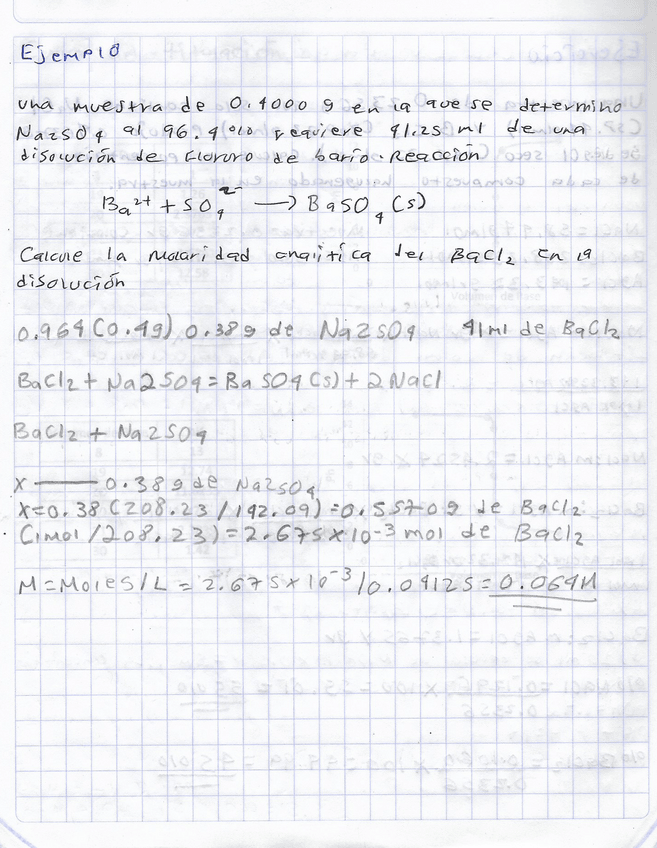 Ejemplo
una muestra de 0.4000 g en la que se determino
Na2SO4 al 96.4% requiere 41.25 ml de una
disolución de Cloruro de bario. Reacción
Ba2+ + SO4 2- → BaSO4 (s)
Calcule la molaridad analítica del BaCl2 en la
disolución
0.964(0.4g) 0.38g de Na2SO4 41ml de BaCl2
BaCl2 + Na2SO4 = BaSO4(s) + 2NaCl
BaCl2 + Na2SO4
x — 0.38g de Na2SO4
x=0.38(208.23/142.04)=0.5570g de BaCl2
(1mol/208.23)=2.675x10-3 mol de BaCl2
M=Moles/L = 2.675x10-3/0.04125=0.064M